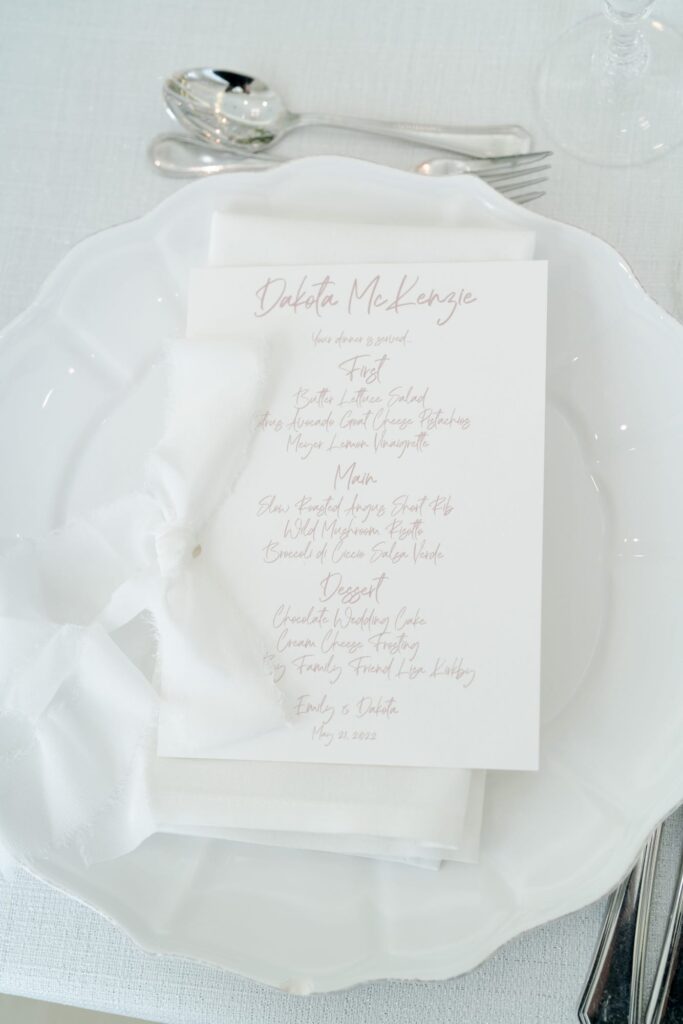 Dakota McKenzie
Your dinner is served...
First
Butter Lettuce Salad
Avocado Goat Cheese Pistachios
Meyer Lemon Vinaigrette
Main
Slow Roasted Angus Short Rib
Wild Mushroom Risotto
Broccoli di Ciccio Salsa Verde
Dessert
Chocolate Wedding Cake
Cream Cheese Frosting
By Family Friend Lisa Kirkby
Emily & Dakota
May 21, 2022